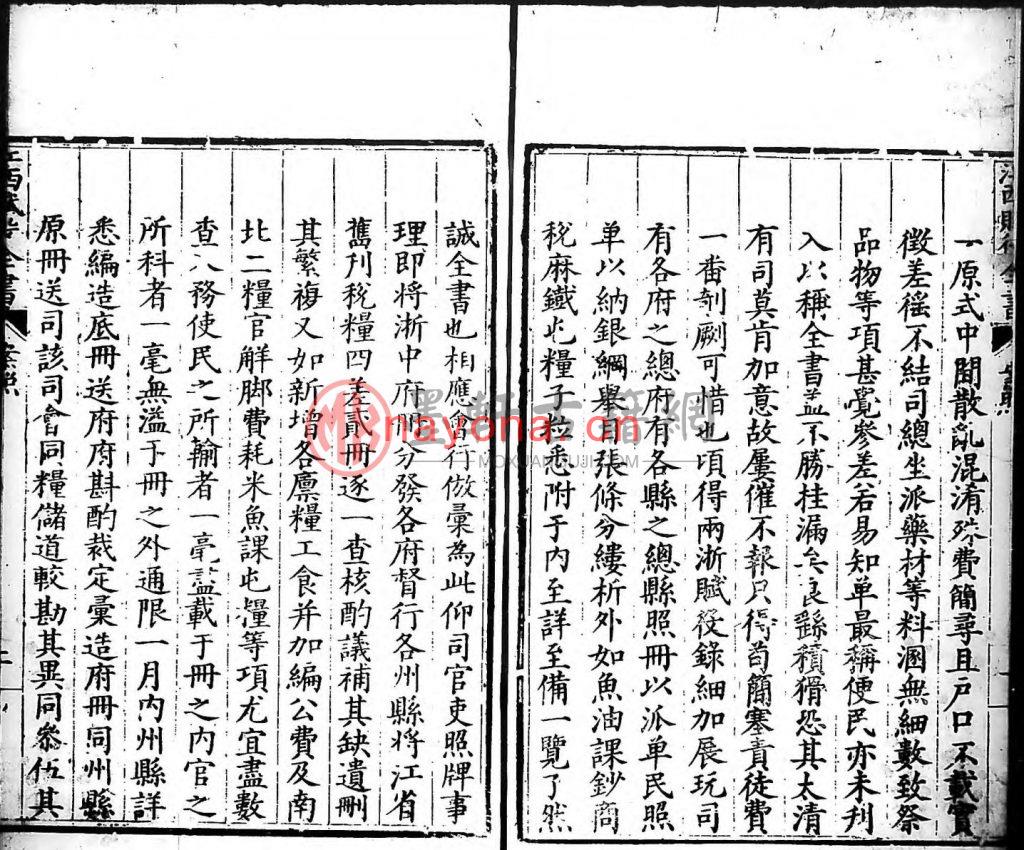 江西賦役全書
一原式中間散亂混淆殊費簡尋且戶口不載實
徵差徭不結司總坐派藥材等料溷無細數致祭
品物等項甚覺參差若易知单最稱便民亦未刋
入以稱全書盖不勝挂漏矣良繇積猾恐其太清
有司莫肯加意故屢催不報只得苟簡塞責徒費
一番剞劂可惜也頃得兩浙賦役錄細加展玩司
有各府之總府有各縣之總縣照冊以派单民照
单以納銀綱舉目張條分縷析外如魚油課鈔商
稅麻鐵屯糧子粒悉附于内至詳至備一覽了然
誠全書也相應會行倣彙為此仰司官吏照牌事
理即將浙中府冊分發各府督行各州縣將江省
舊刊稅糧四差貳冊逐一查核酌議補其缺遺刪
其繁複又如新增各廪糧工食并加編公費及南
北二糧官解脚費耗米魚課屯糧等項尤宜盡數
查入務使民之所輸者一毫盡載于冊之内官之
所科者一毫無溢于冊之外通限一月内州縣詳
悉編造底冊送府府斟酌裁定彙造府冊同州縣
原冊送司該司會同糧儲道較勘其異同叅伍其
江西賦役全書
案照
墨軒古籍網
nayona.cn
MOXUANGUJI.COM